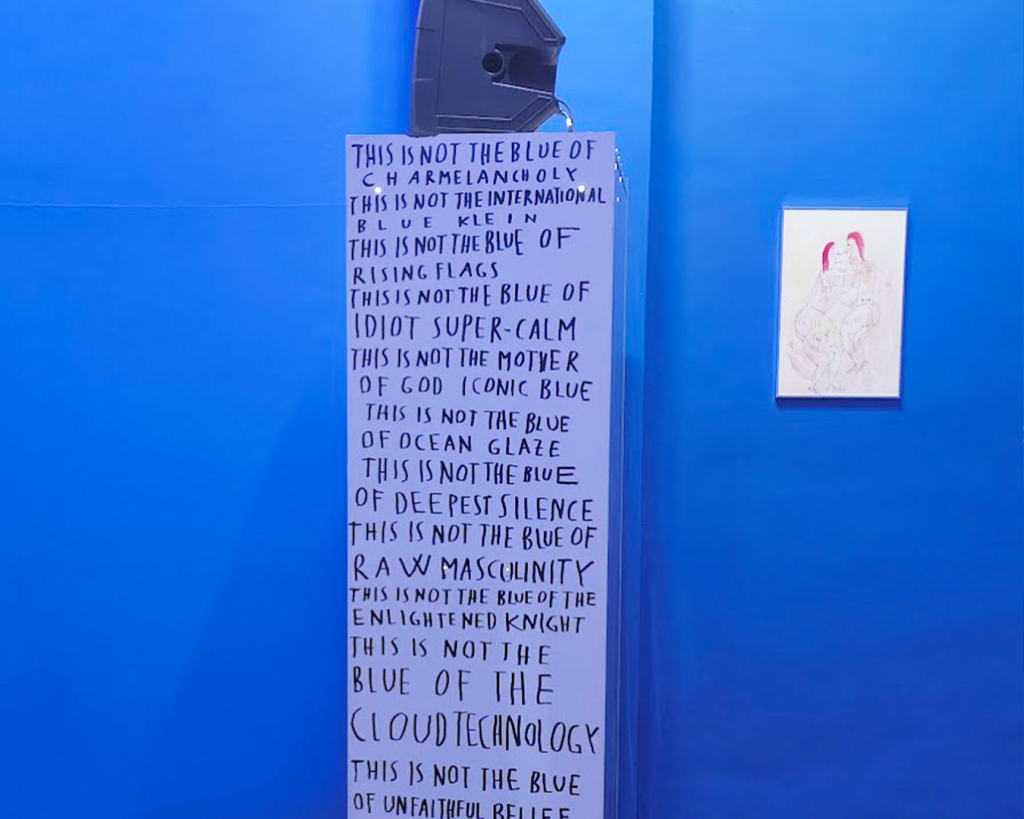 THIS IS NOT THE BLUE OF
CHARMELANCHOLY
THIS IS NOT THE INTERNATIONAL
BLUE KLEIN
THIS IS NOT THE BLUE OF
RISING FLAGS
THIS IS NOT THE BLUE OF
IDIOT SUPER-CALM
THIS IS NOT THE MOTHER
OF GOD ICONIC BLUE
THIS IS NOT THE BLUE
OF OCEAN GLAZE
THIS IS NOT THE BLUE
OF DEEPEST SILENCE
THIS IS NOT THE BLUE OF
RAW MASCULINITY
THIS IS NOT THE BLUE OF THE
ENLIGHTENED KNIGHT
THIS IS NOT THE
BLUE OF THE
CLOUD TECHNOLOGY
THIS IS NOT THE BLUE
OF UNFAITHFUL BELIEF